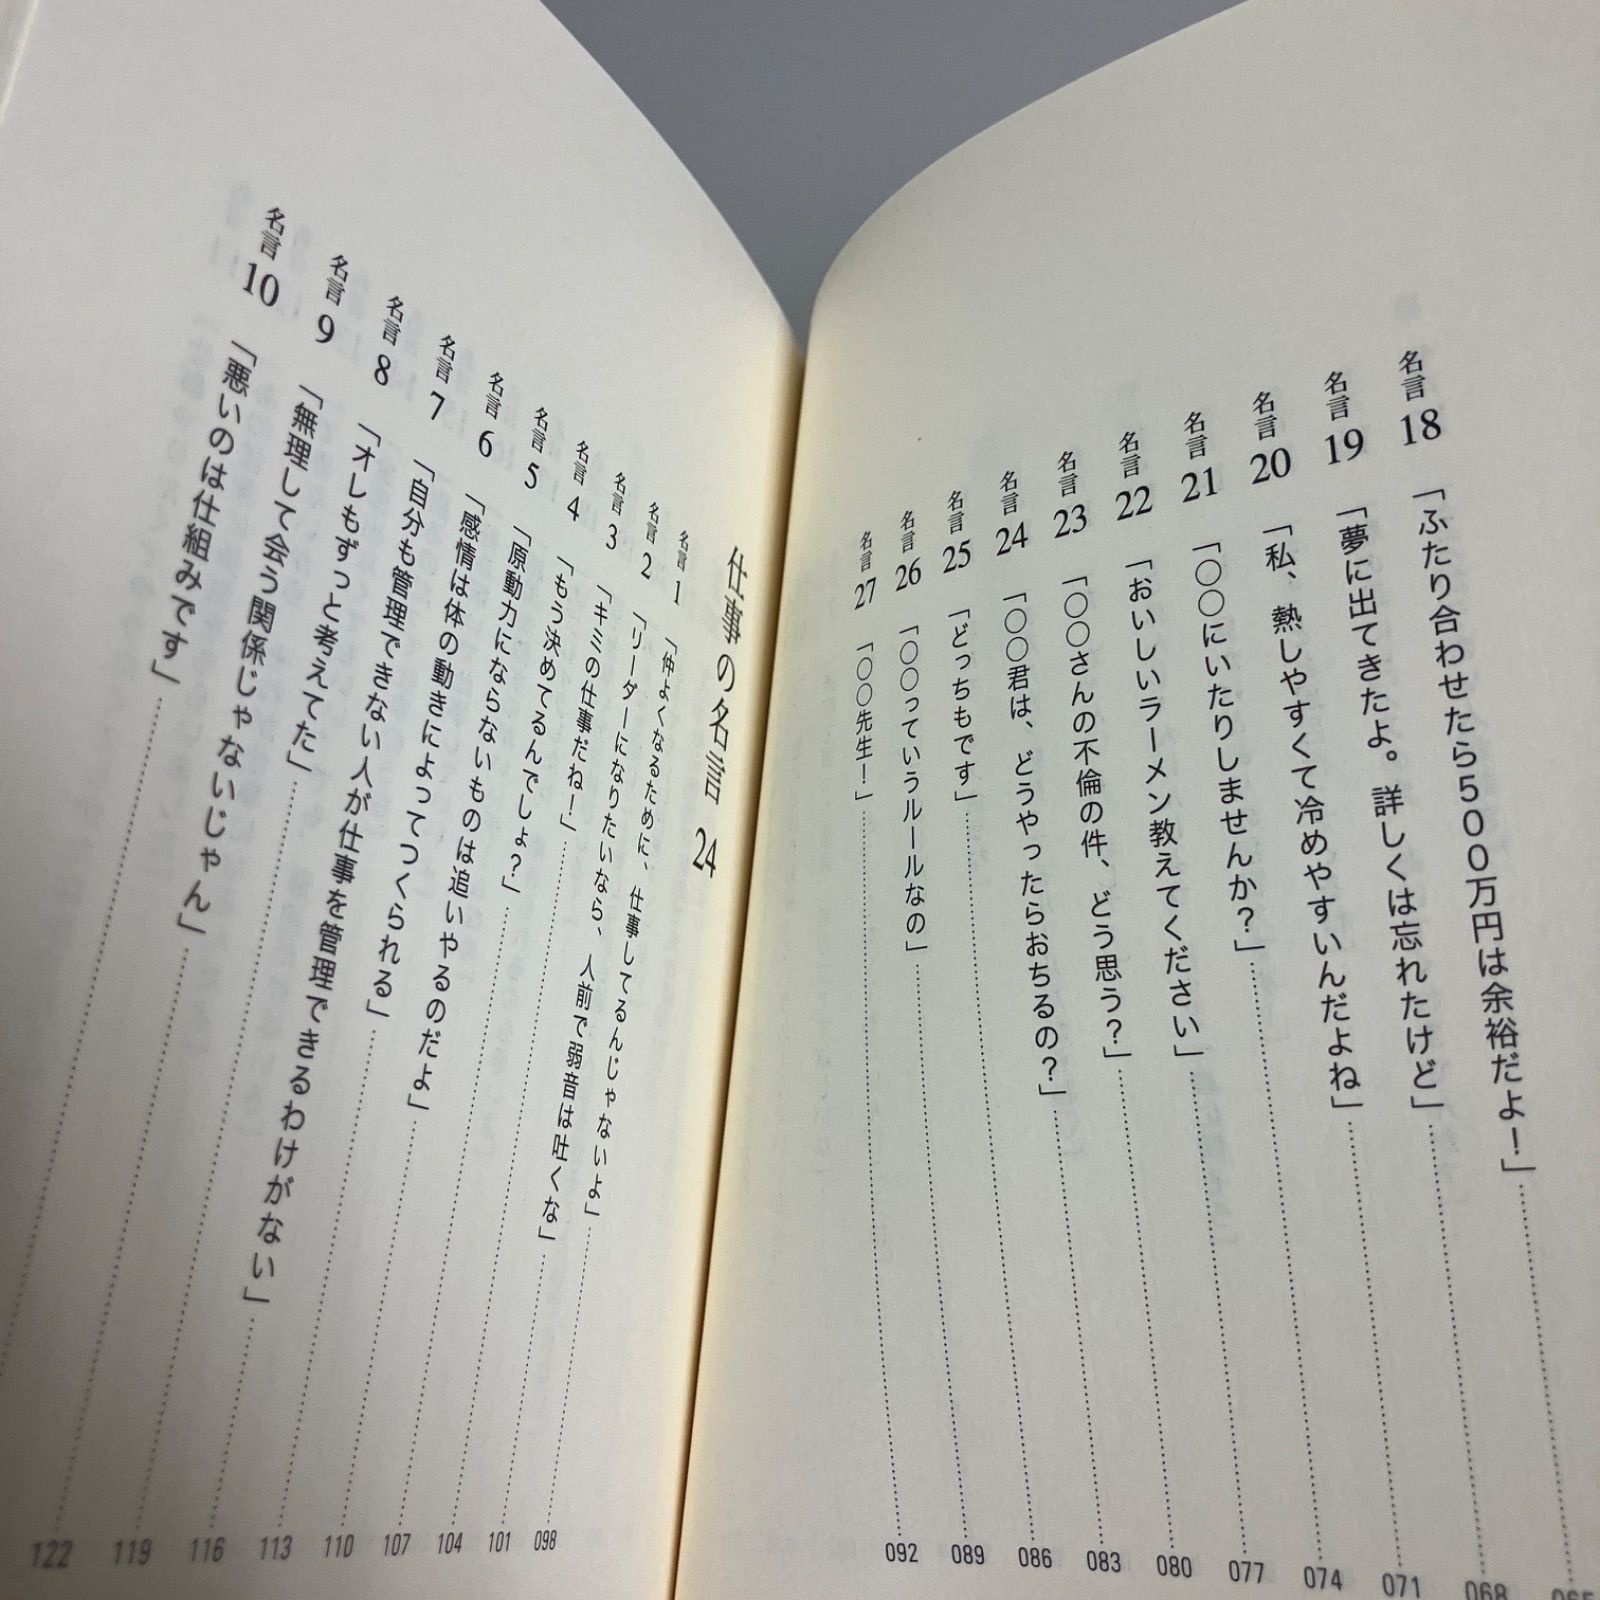 名言18 「ふたり合わせたら500万円は余裕だよ！」 065
名言19 「夢に出てきたよ。詳しくは忘れたけど」 068
名言20 「私、熱しやすくて冷めやすいんだよね」 071
名言21 「○○にいたりしませんか？」 074
名言22 「おいしいラーメン教えてください」 077
名言23 「○○さんの不倫の件、どう思う？」 080
名言24 「○○君は、どうやったらおちるの？」 083
名言25 「どっちもです」 086
名言26 「○○っていうルールなの」 089
名言27 「○○先生！」 092
仕事の名言 24
名言1 「仲よくなるために、仕事してるんじゃないよ」 098
名言2 「リーダーになりたいなら、人前で弱音は吐くな」 101
名言3 「キミの仕事だね！」 104
名言4 「もう決めてるんでしょ？」 107
名言5 「原動力にならないものは追いやるのだよ」 110
名言6 「感情は体の動きによってつくられる」 113
名言7 「自分も管理できない人が仕事を管理できるわけがない」 116
名言8 「オレもずっと考えてた」 119
名言9 「無理して会う関係じゃないじゃん」 122
名言10 「悪いのは仕組みです」